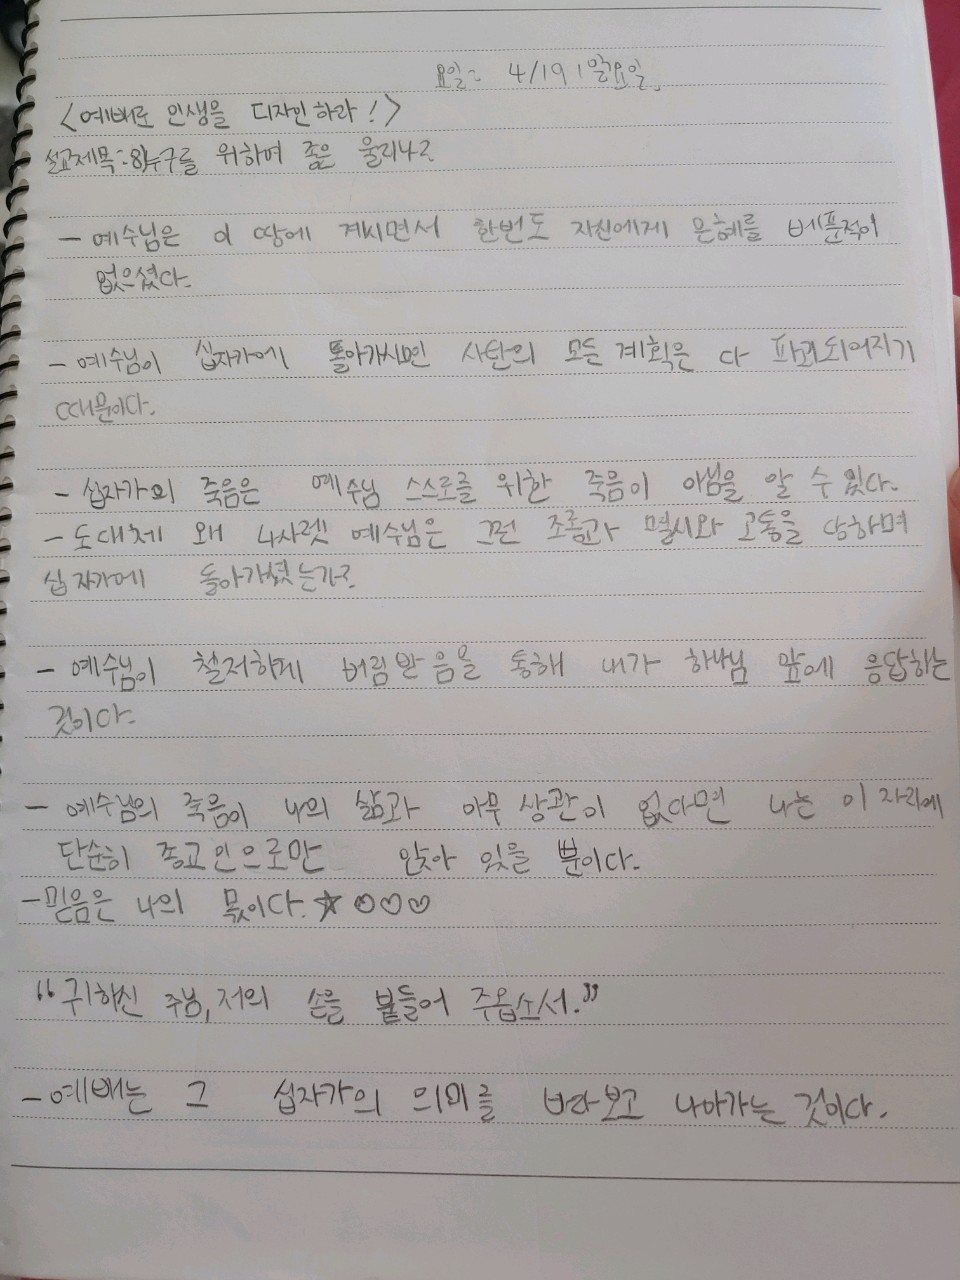 요일: 4/19 일요일
<예배로 인생을 디자인하라!>
설교제목: 8)누구를 위하여 종은 울리나?
- 예수님은 이 땅에 계시면서 한번도 자신에게 은혜를 베푼적이
없으셨다.
- 예수님이 십자가에 돌아가시면 사탄의 모든 계획은 다 파괴되어지기
때문이다.
- 십자가의 죽음은 예수님 스스로를 위한 죽음이 아님을 알 수 있다.
- 도대체 왜 나사렛 예수님은 그런 조롱과 멸시와 고통을 당하며
십자가에 돌아가셨는가?
- 예수님이 철저하게 버림받음을 통해 내가 하나님 앞에 응답하는
것이다.
- 예수님의 죽음이 나의 삶과 아무 상관이 없다면 나는 이 자리에
단순히 종교인으로만 앉아 있을 뿐이다.
- 믿음은 나의 몫이다.☆♡♡♡
"귀하신 주님, 저의 손을 붙들어 주옵소서."
- 예배는 그 십자가의 의미를 바라보고 나아가는 것이다.